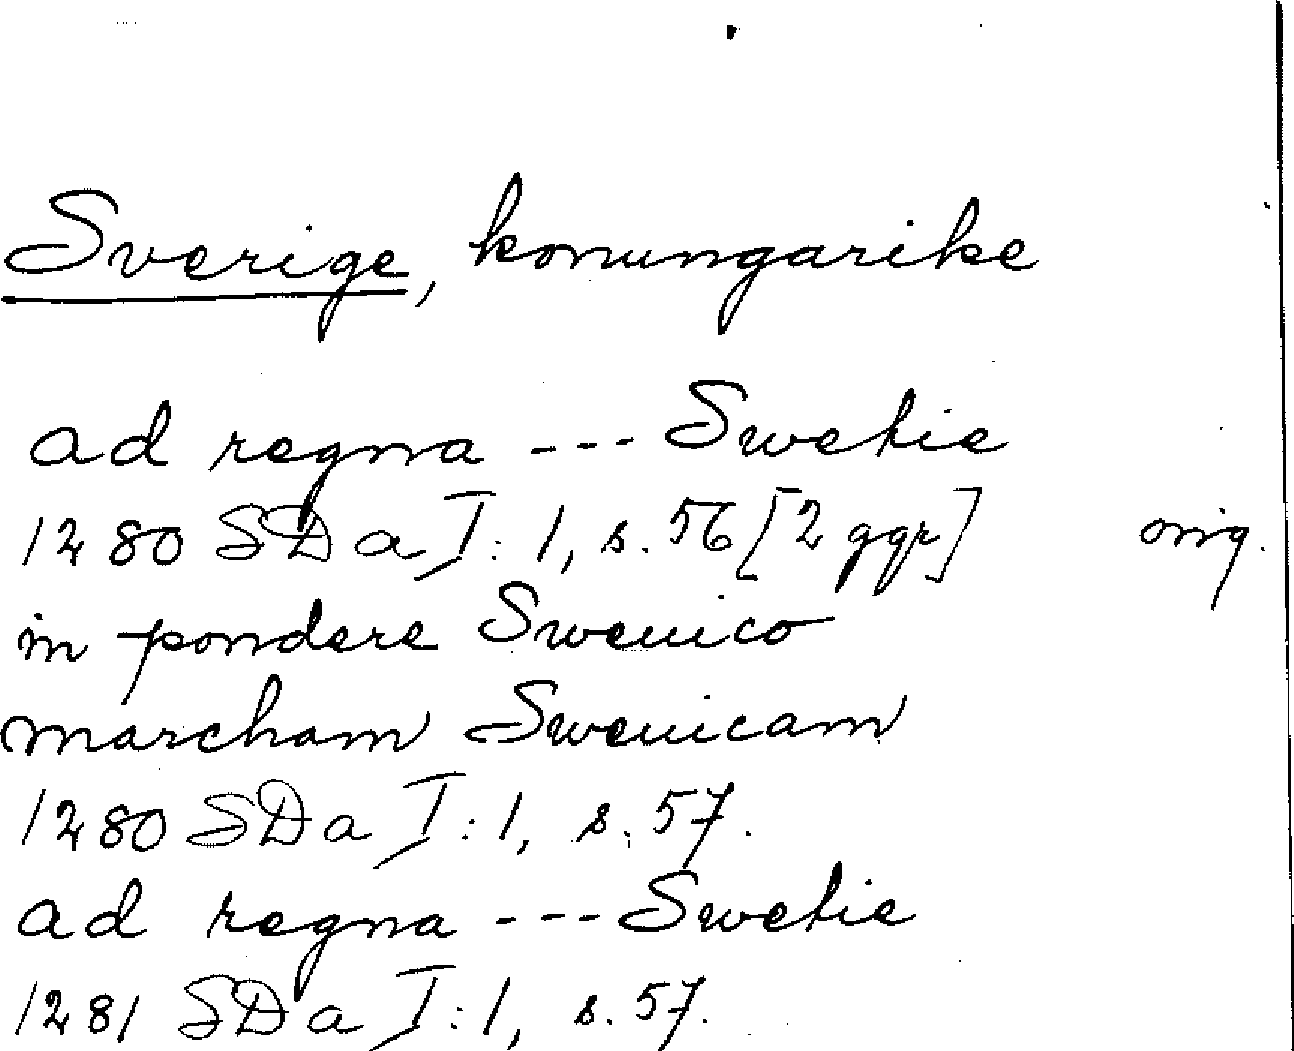 Sverige, konungarike
ad regna --- Swetie
1280 SDa I:1, s. 56 [2 ggr] orig.
in pondere Swenico
marcham Swenicam
1280 SDa I:1, s. 57.
ad regna --- Swetie
1281 SDa I:1, s. 57.